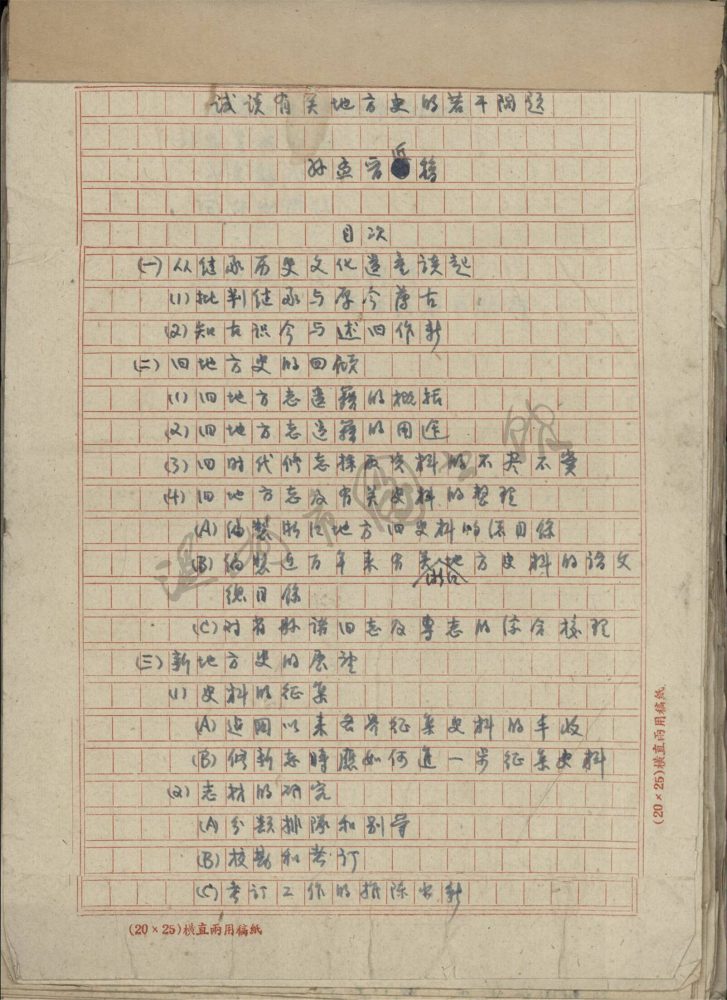 试谈有关地方史的若干问题
孙宣 近稿
目次
(一)从继承历史文化遗产谈起
(1)批判继承与厚今薄古
(2)知古识今与述旧作新
(二)旧地方史的回顾
(1)旧地方志遗籍的概括
(2)旧地方志遗籍的用途
(3)旧时代修志采取资料的不尽不实
(4)旧地方志及有关史料的整理
(A)编制浙江地方旧史料的总目录
(B)编制近百年来有关浙江地方史料的论文
总目录
(C)对省县诸旧志及专志的综合整理
(三)新地方史的展望
(1)史料的征集
(A)近因以来各界征集史料的丰收
(B)修新志時應如何進一步征集史料
(2)志材的研究
(A)分类排队和别等
(B)校勘和考订
(C)考订工作的推陈出新
(20×25)橫直兩用稿紙
(20×25)橫直兩用稿紙
温州市圖书館